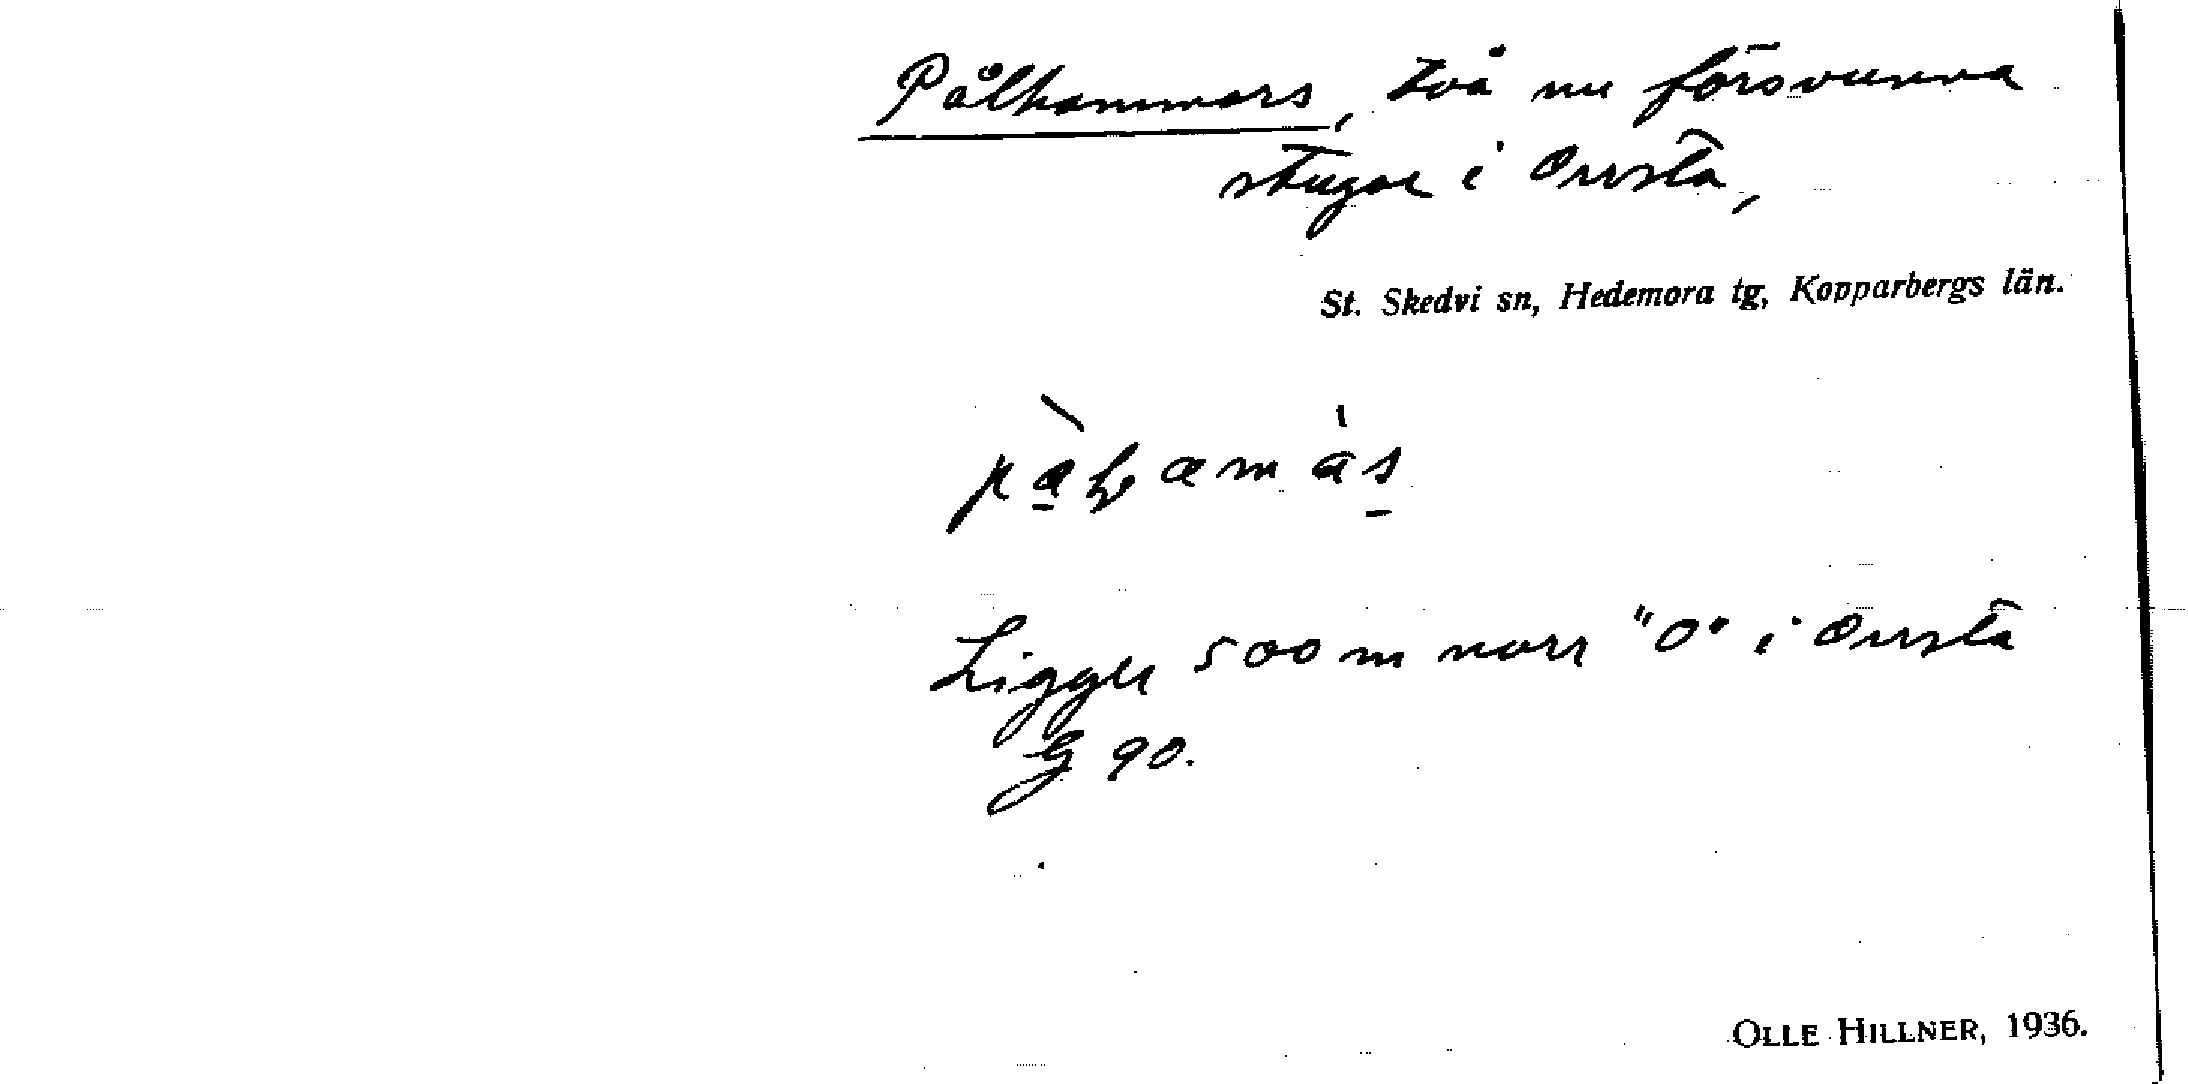 Pålhammars, två nu försvunna
stugor i Ovrsta,
St. Skedvi sn, Hedemora tg, Kopparbergs län.
Ligger 500 m norr "O" i Ovrsta
G 90.
OLLE HILLNER, 1936.